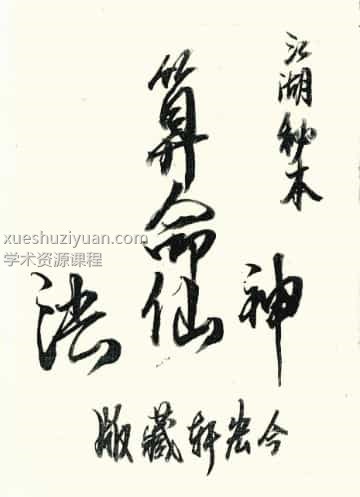 江湖秘本
算命
神仙法
今宏轩藏版
xueshuziyuan.com
学术资源课程